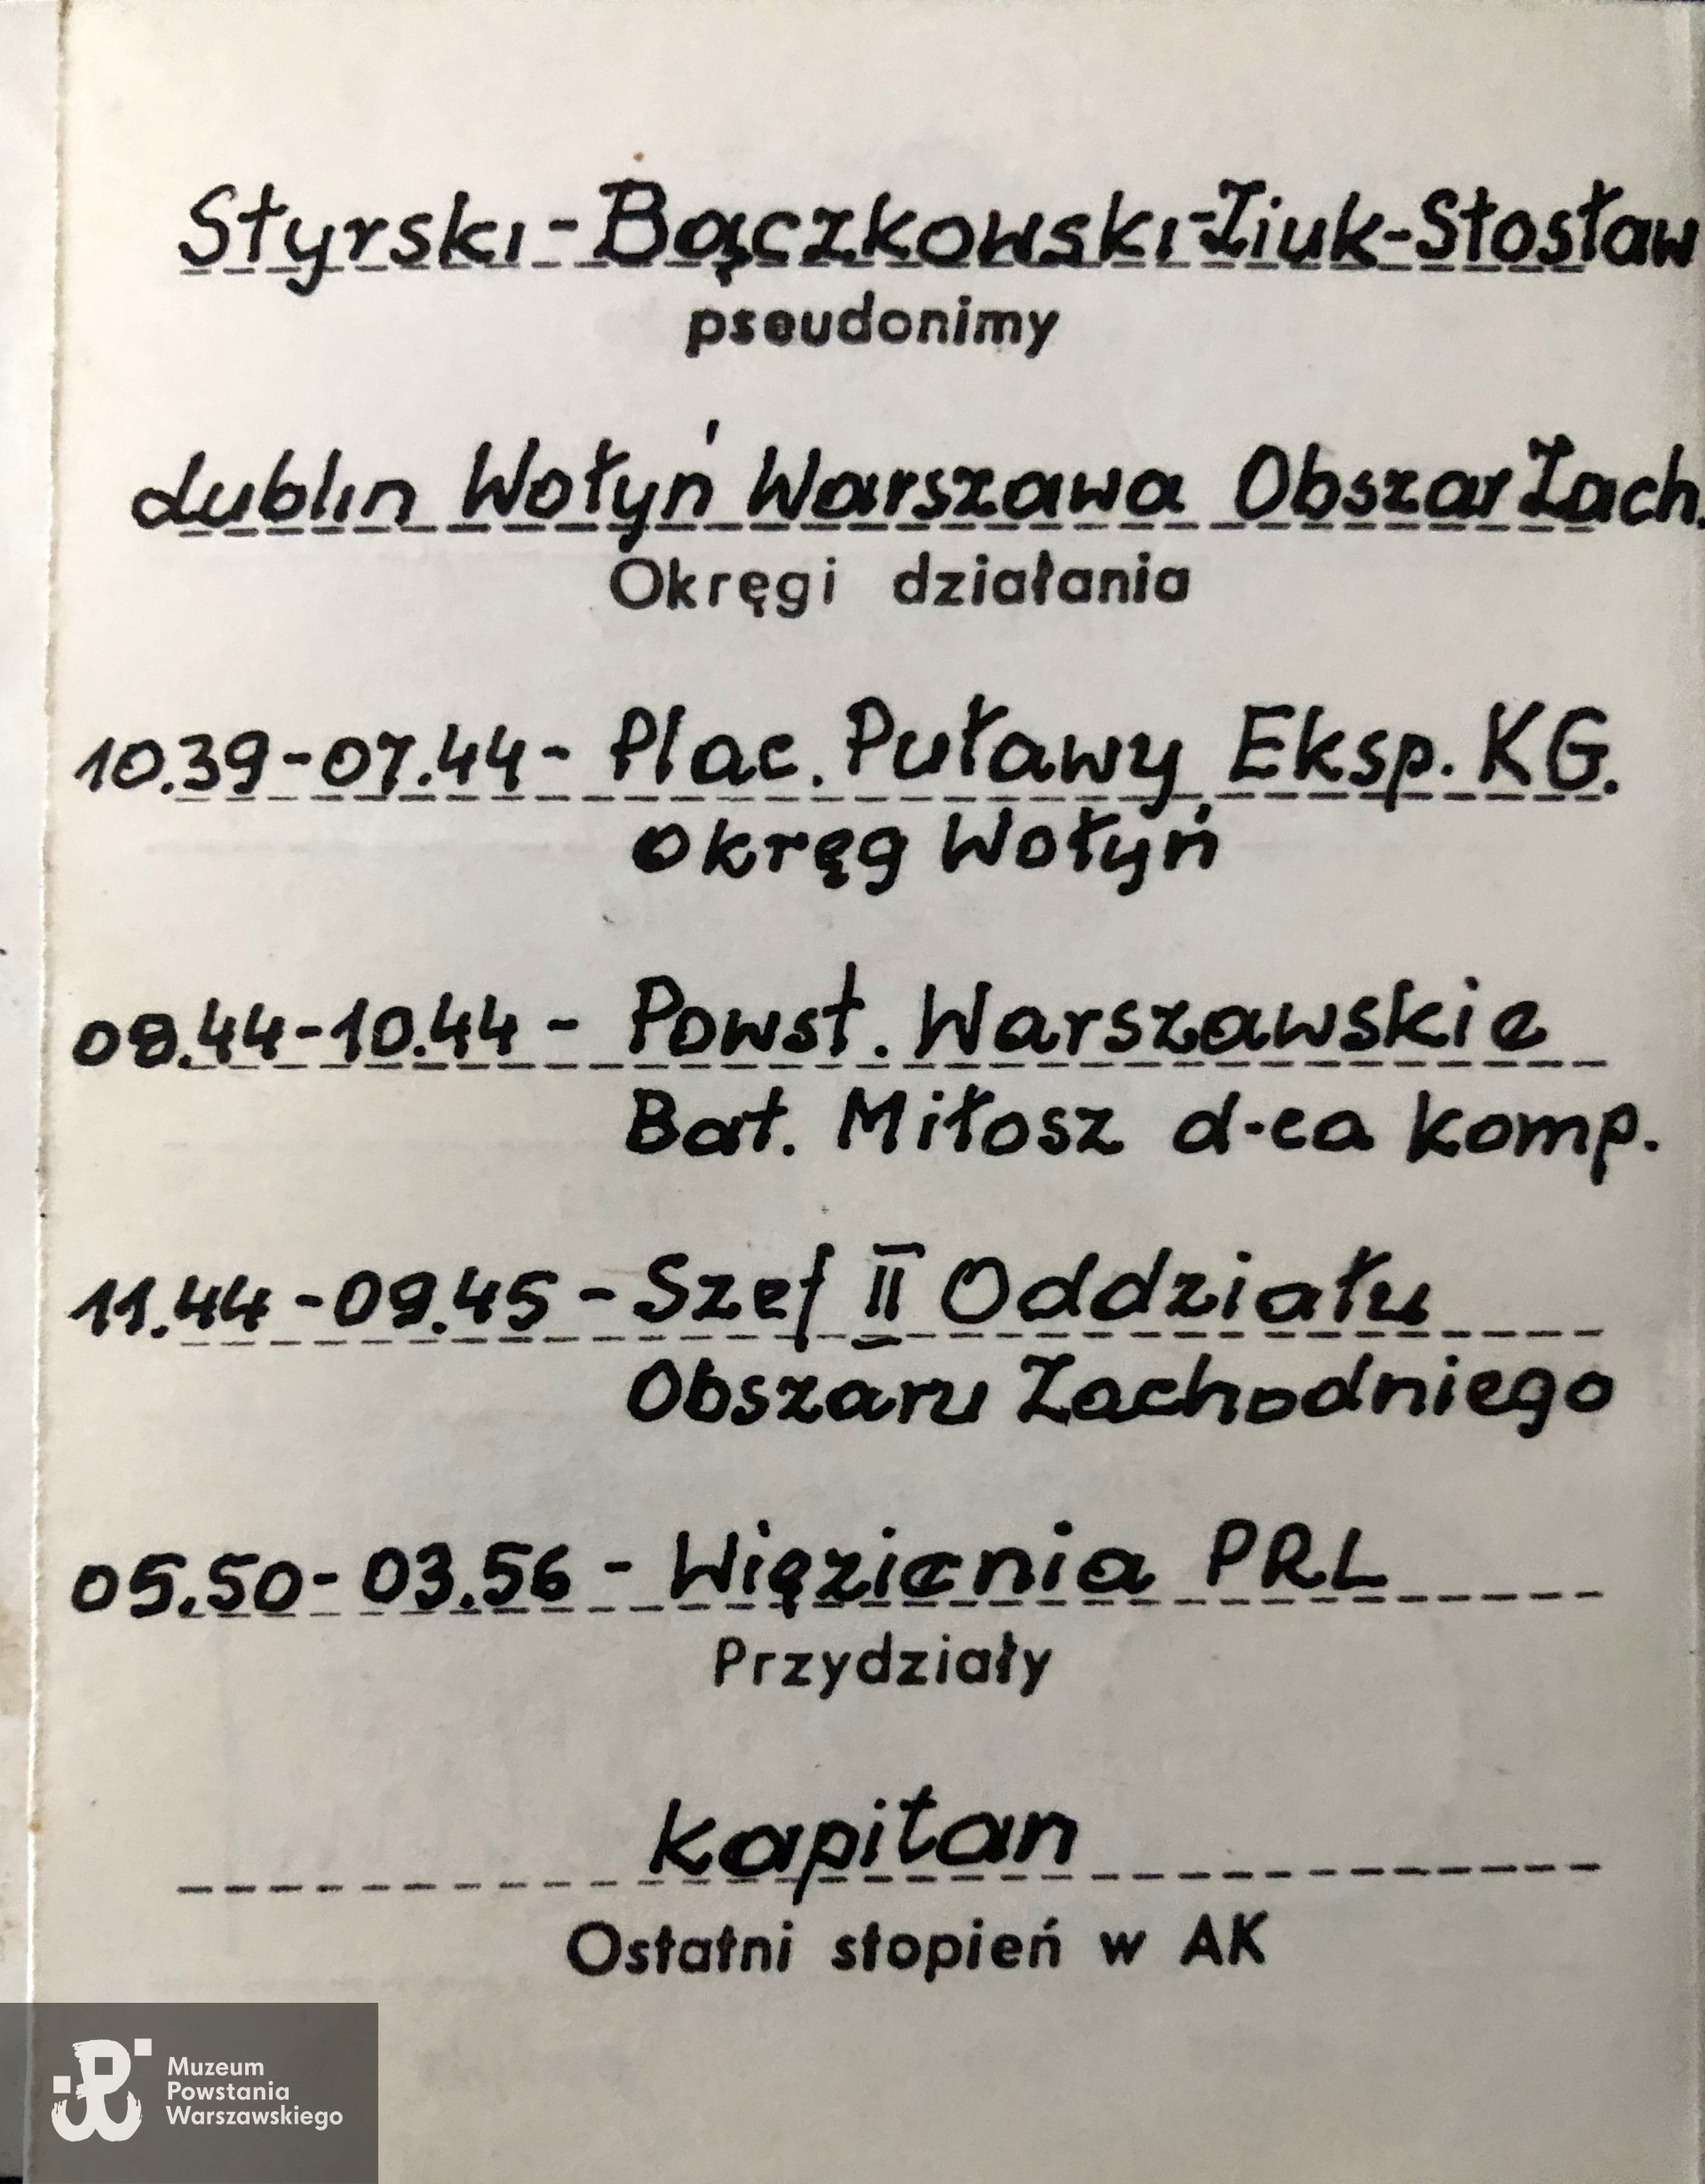 Styrski-Bączkowski-Ziuk-Stosław
pseudonimy
Lublin Wołyń Warszawa Obszar Zach.
Okręgi działania
10.39-07.44- Plac. Puławy Eksp. KG.
Okręg Wołyń
08.44-10.44 - Powst. Warszawskie
Bat. Miłosz d-ca komp.
11.44 -09.45 - Szef II Oddziału
Obszaru Zachodniego
05.50- 03.56 - Więzienia PRL
Przydziały
kapitan
Ostatni stopień w AK
Muzeum
Powstania
Warszawskiego